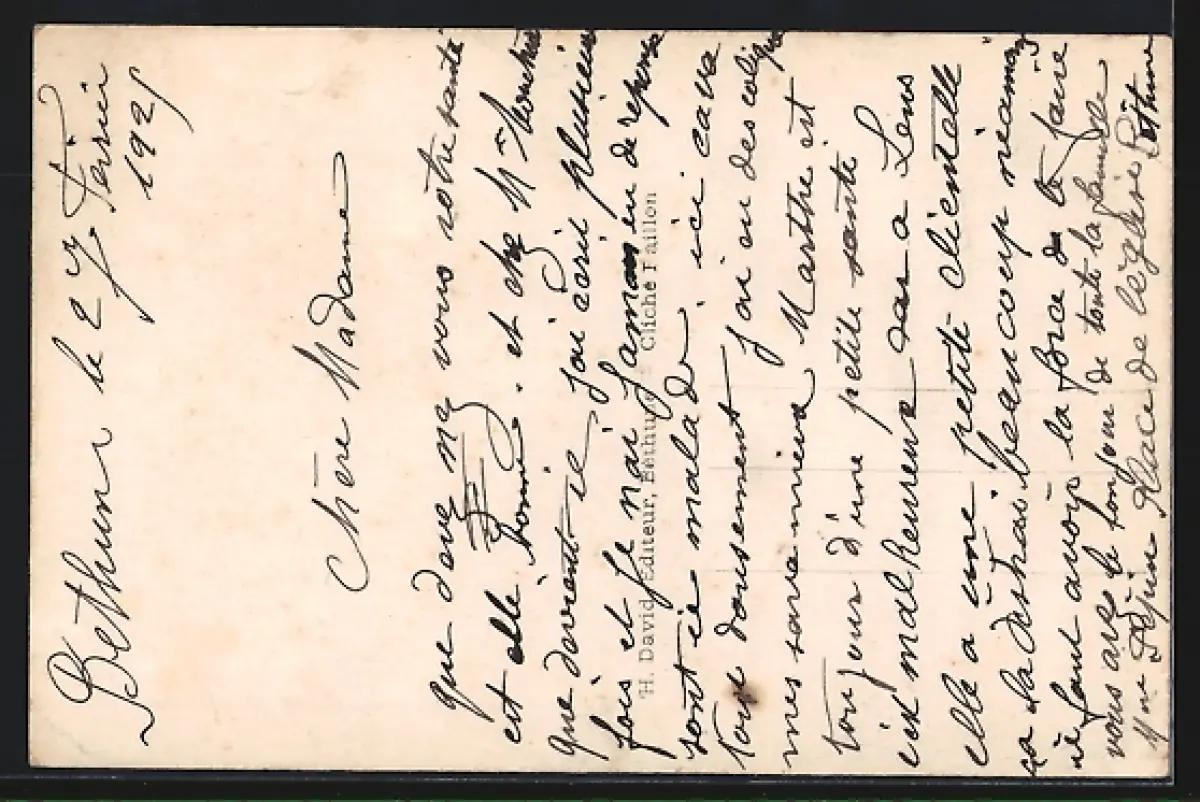 Bethune le 27 Février
1921
Chère Madame
que devenez vous votre santé
est elle bonne. et chez Mr
que devient il j'ai écrit plusieur
fois et je n'ai jamai eu de réponse
sont il malade. ici ca va
tout dousement j'ai eu des colique
mes sa va mieux Marthe est
toujour d'une petite santé
c'est malheureux a Lens
elle a une petite clientelle
ça la destrai beaucoup néanmoi
il faut avoir la force de le faire
vous avez le bonjour de toute la famille
Mme Dejuin Place de léglise Béthune
H. David Editeur, Béthune Cliché Faillon